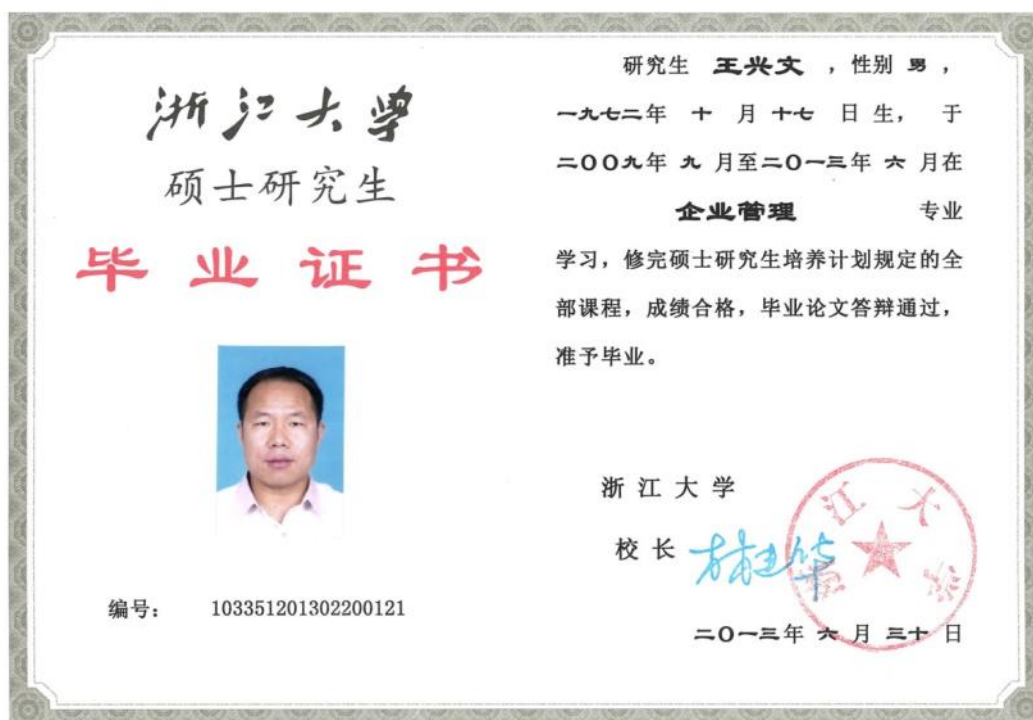 浙江大学
硕士研究生
毕业证书
编号： 103351201302200121
研究生 王兴文 ，性别 男 ，
一九七二年 十 月 十七 日 生， 于
二〇〇九年 九 月至二〇一三年 六 月在
企业管理 专业
学习，修完硕士研究生培养计划规定的全
部课程，成绩合格，毕业论文答辩通过，
准予毕业。
浙 江 大 学
校 长 林建华
浙江大学
二〇一三年 六 月 三十 日